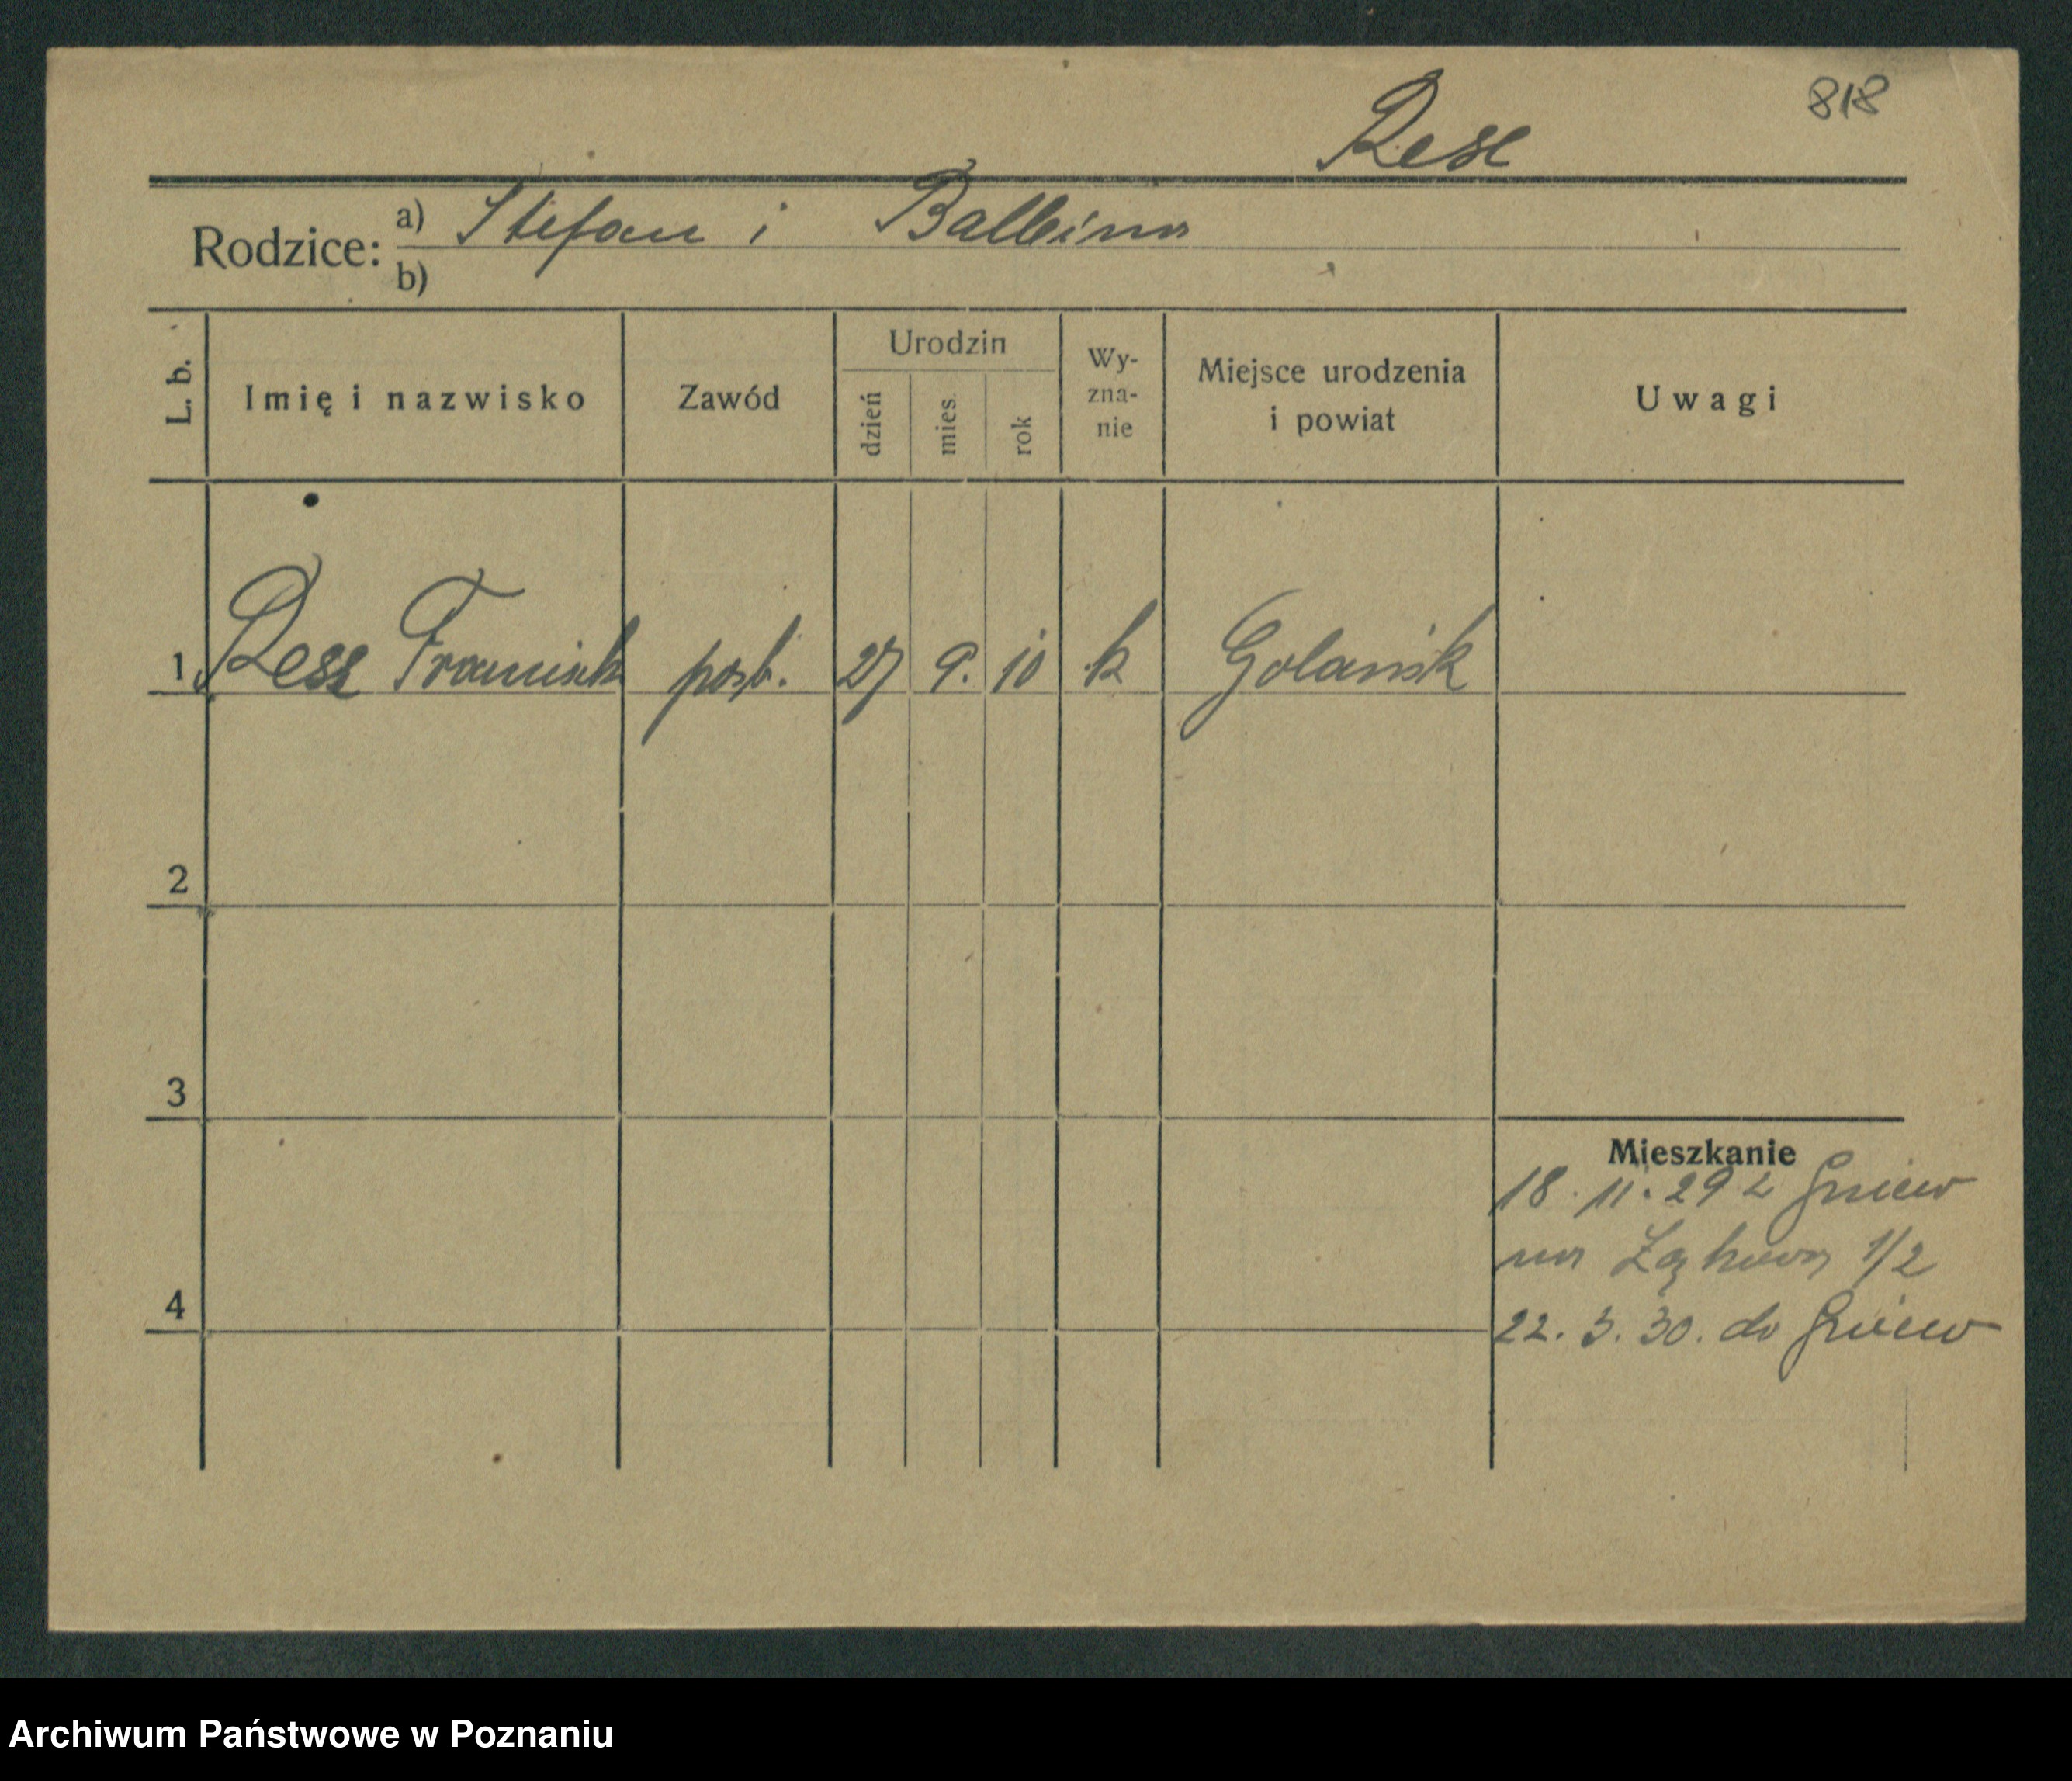 818
Rese
Rodzice: a) Stefan i Balbina
b)
L. b.
Imię i nazwisko
Zawód
Urodzin
dzień
mies.
rok
Wy-
zna-
nie
Miejsce urodzenia
i powiat
Uwagi
1 Franciszek 27 9. 10 k
2
3
4
Mieszkanie
18. 11. 29 z Gniew
na 1/2
22. 3. 30. do Gniew
Archiwum Państwowe w Poznaniu